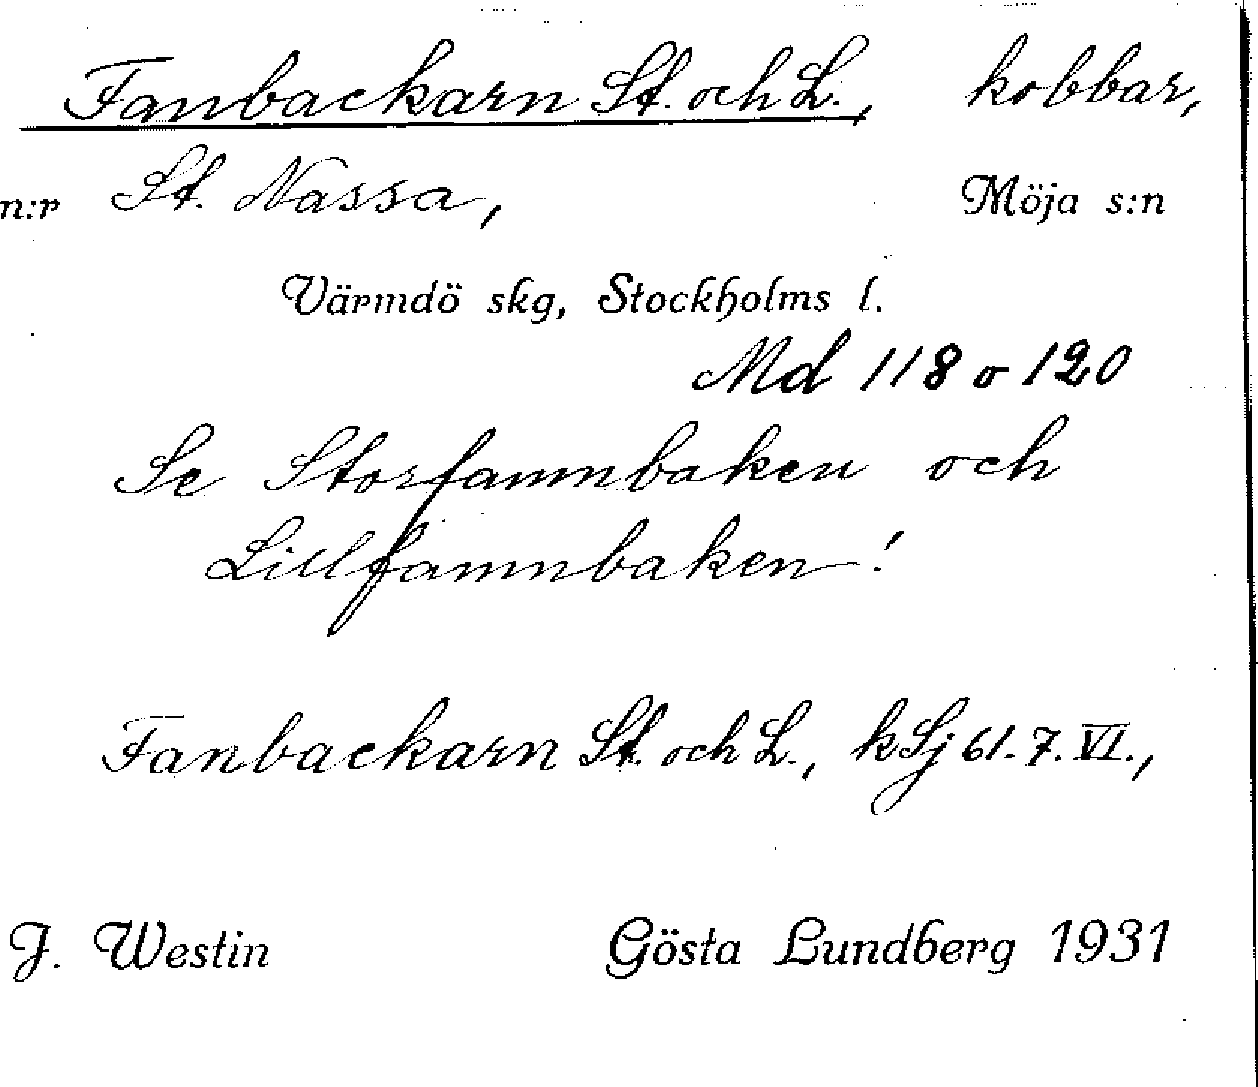 Fanbackarn St. och L., kobbar,
n:r St. Nassa, Möja s:n
Värmdö skg, Stockholms l.
Md 118 o 120
Se Storfamnbaken och
Lillfamnbaken!
Fanbackarn St. och L., kSj 61. 7. VI.,
J. Westin Gösta Lundberg 1931